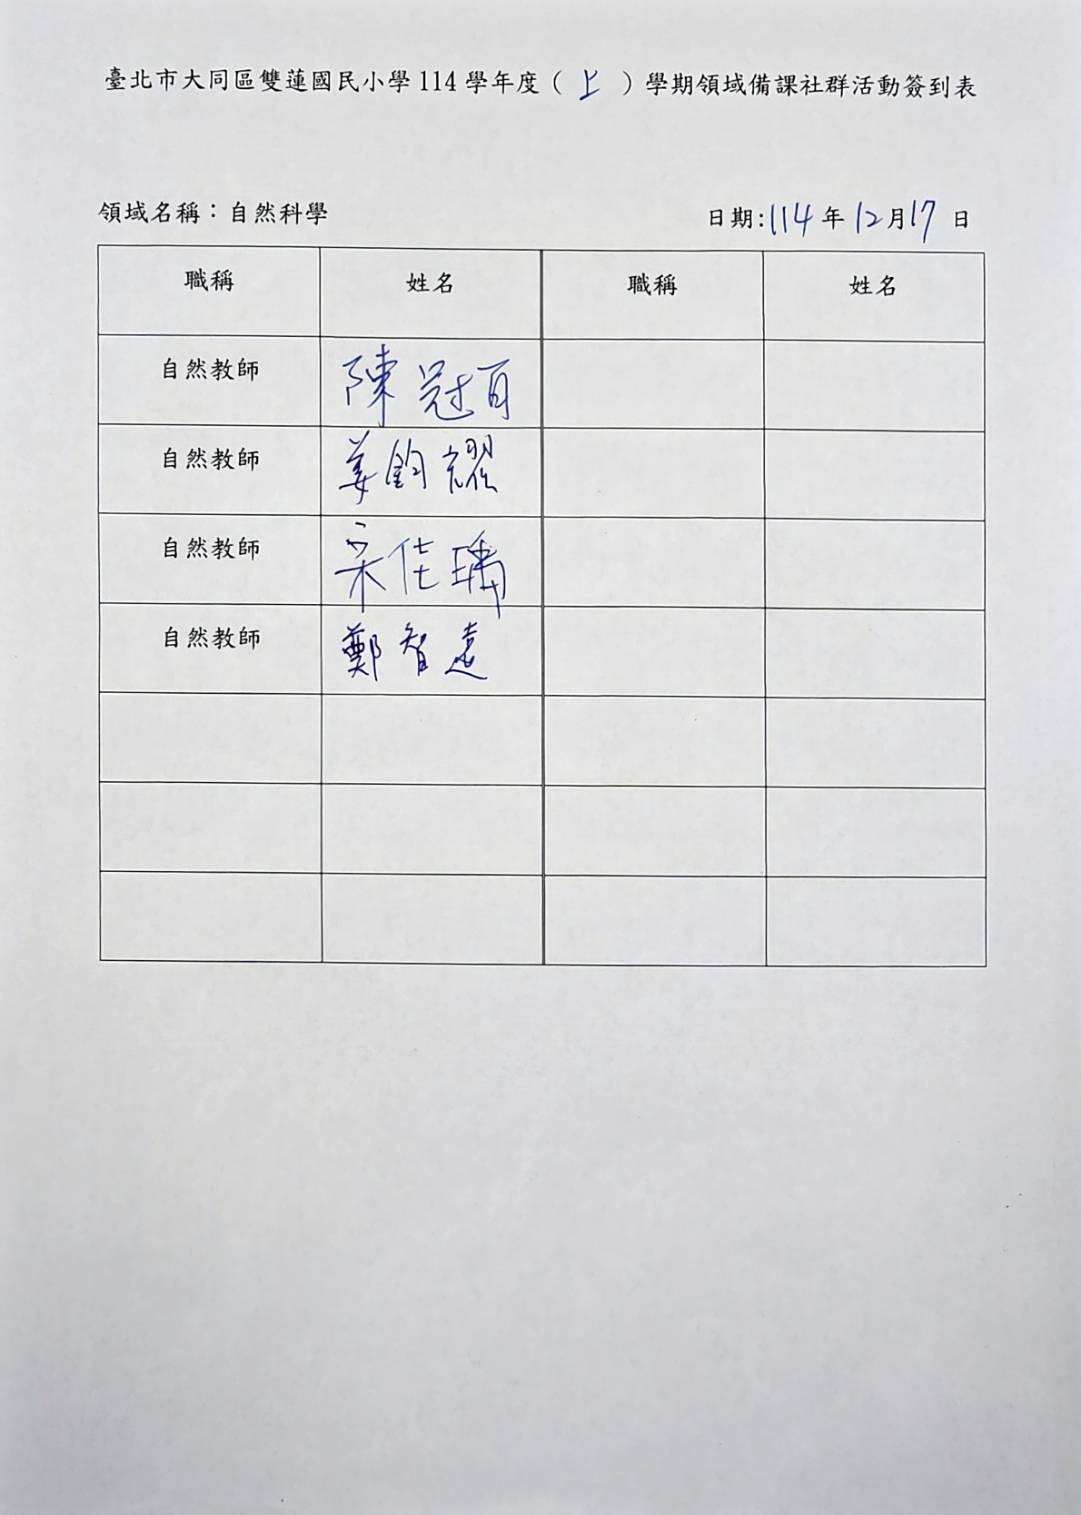 臺北市大同區雙蓮國民小學 114 學年度（ 上 ）學期領域備課社群活動簽到表
領域名稱：自然科學 日期:114 年 12 月 17 日
職稱 姓名 職稱 姓名
自然教師 陳冠百
自然教師 姜鈞耀
自然教師 宋佳瑀
自然教師 鄭智遠